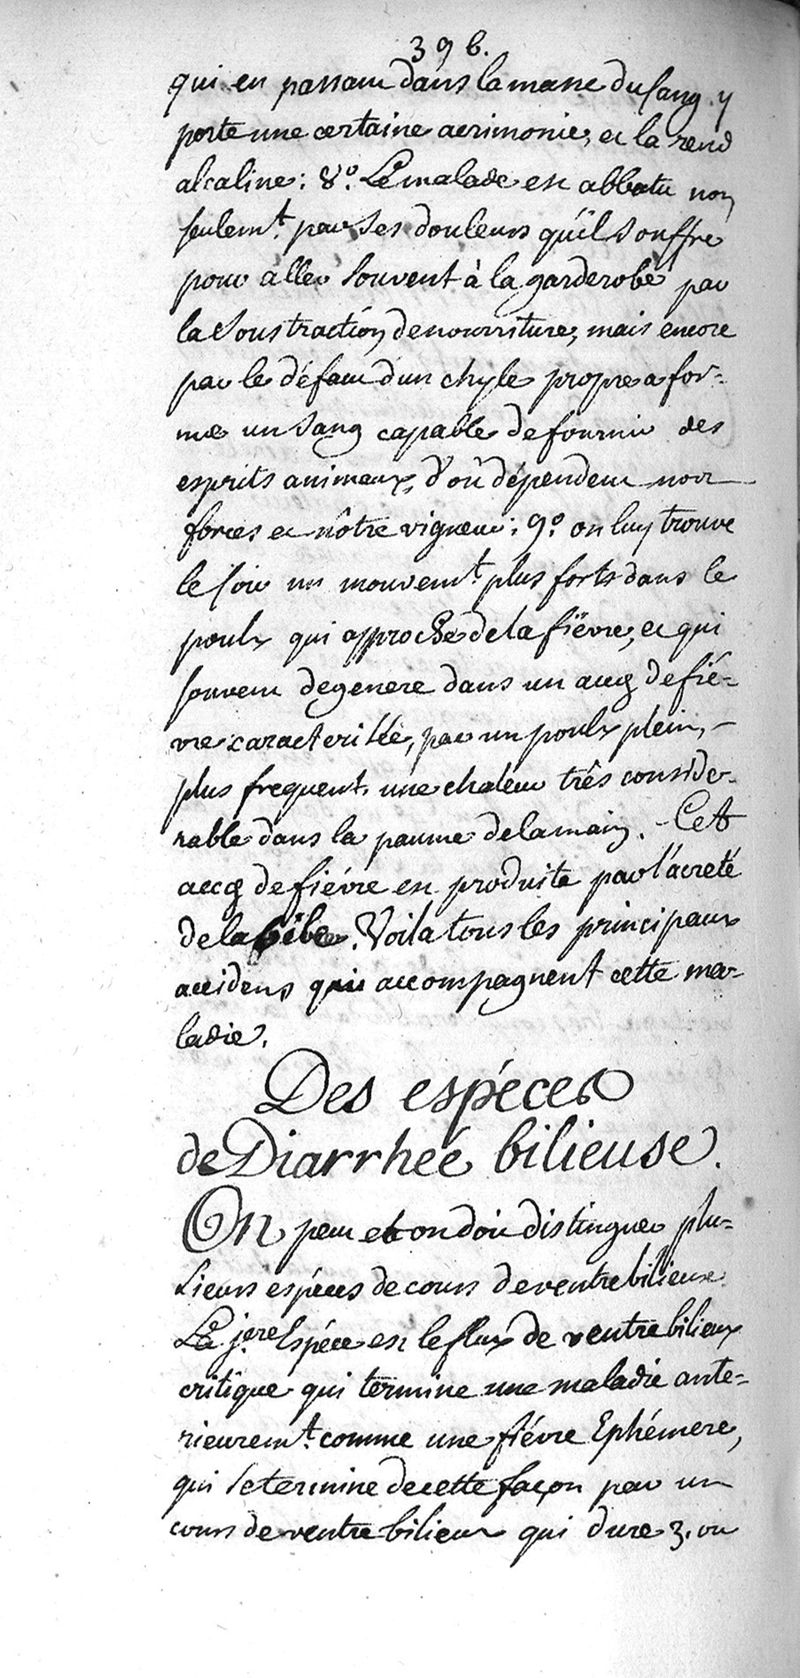 396.
qui en passant dans la masse du sang y
porte une certaine acrimonie, et la rend
alcaline: 8.º Le malade est abbatu non
seulem.t par les douleurs qu'il souffre
pour aller souvent à la garderobe par
la soustraction de nourriture, mais encore
par le défaut d'un chyle propre a for=
mer un sang capable de fournir des
esprits animaux, d'où dépendent nos
forces et nôtre vigueur: 9.º on luy trouve
le soir un mouvem.t plus forts dans le
pouls qui approche de la fiévre, et qui
souvent degenere dans un accès de fié=
vre caracterisée, par un pouls plein,
plus frequent, une chaleur très conside=
rable dans la paume de la main. Cet
accès de fiévre est produite par l'acreté
de la bile. Voila tous les principaux
accidens qui accompagnent cette ma=
ladie.
Des espéces
de Diarrheé bilieuse.
On peut et on doit distinguer plu=
sieurs espéces de cours de ventre bilieux
La j.ere Espéce est le flux de ventre bilieux
critique qui termine une maladie ante=
rieurem.t comme une fiévre Ephémere,
qui se termine de cette façon par un
cours de ventre bilieux qui dure 3. ou